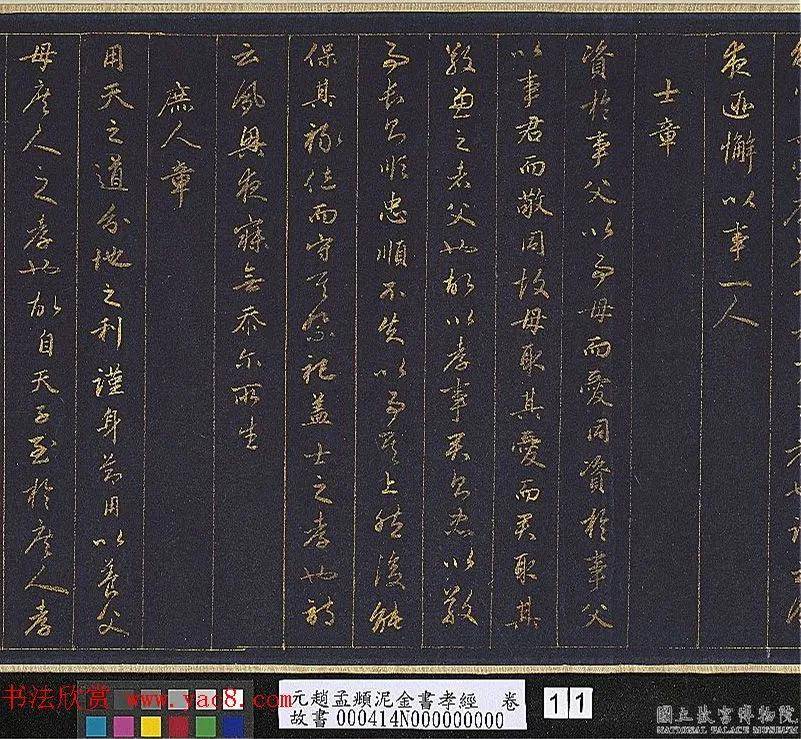 夜匪懈以事一人
士章
資於事父以事母而愛同資於事父
以事君而敬同故母取其愛而君取其
敬兼之者父也故以孝事君則忠以敬
事長則順忠順不失以事其上然後能
保其祿位而守其祭祀盖士之孝也詩
云夙興夜寐無忝尔所生
庶人章
用天之道分地之利謹身節用以養父
母庶人之孝也故自天子至於庶人孝
书法欣赏 www.yac8.com
元趙孟頫泥金書孝經 卷
故書000414N000000000
11
國立故宮博物院
NATIONAL PALACE MUSEUM